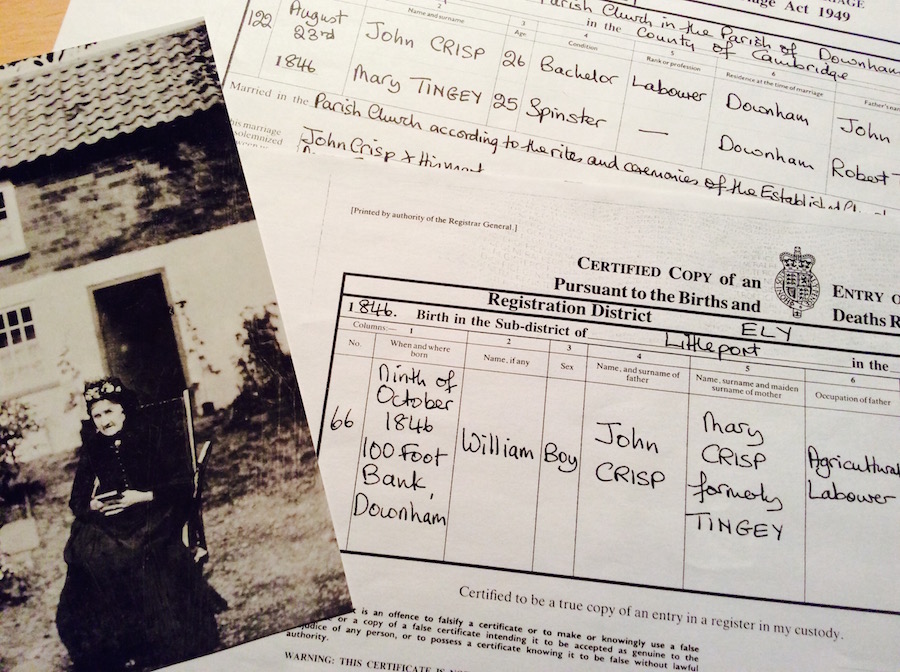 Parish Church in the Parish of Downham
Act 1949
in the County of Cambridge
2 3 4 5 6
Name and surname Age Condition Rank or profession Residence at the time of marriage Father's
122 August 23rd 1846 John CRISP 26 Bachelor Labourer Downham John
Mary TINGEY 25 Spinster — Downham Robert
Married in the Parish Church according to the rites and ceremonies of the Established
his marriage
solemnized
John Crisp X
[Printed by authority of the Registrar General.]
CERTIFIED COPY of an ENTRY
Pursuant to the Births and Deaths R
Registration District ELY
1846. Birth in the Sub-district of Littleport in the
Columns:— 1 2 3 4 5 6
No. When and where born Name, if any Sex Name, and surname of father Name, surname and maiden surname of mother Occupation of father
66 Ninth of October 1846 100 Foot Bank, Downham William Boy John CRISP Mary CRISP formerly TINGEY Agricultural Labourer
Certified to be a true copy of an entry in a register in my custody.
is an offence to falsify a certificate or to make or knowingly use a false
or a copy of a false certificate intending it to be accepted as genuine to the
of any person, or to possess a certificate knowing it to be false without lawful
authority.
WARNING: THIS CERTIFICATE IS